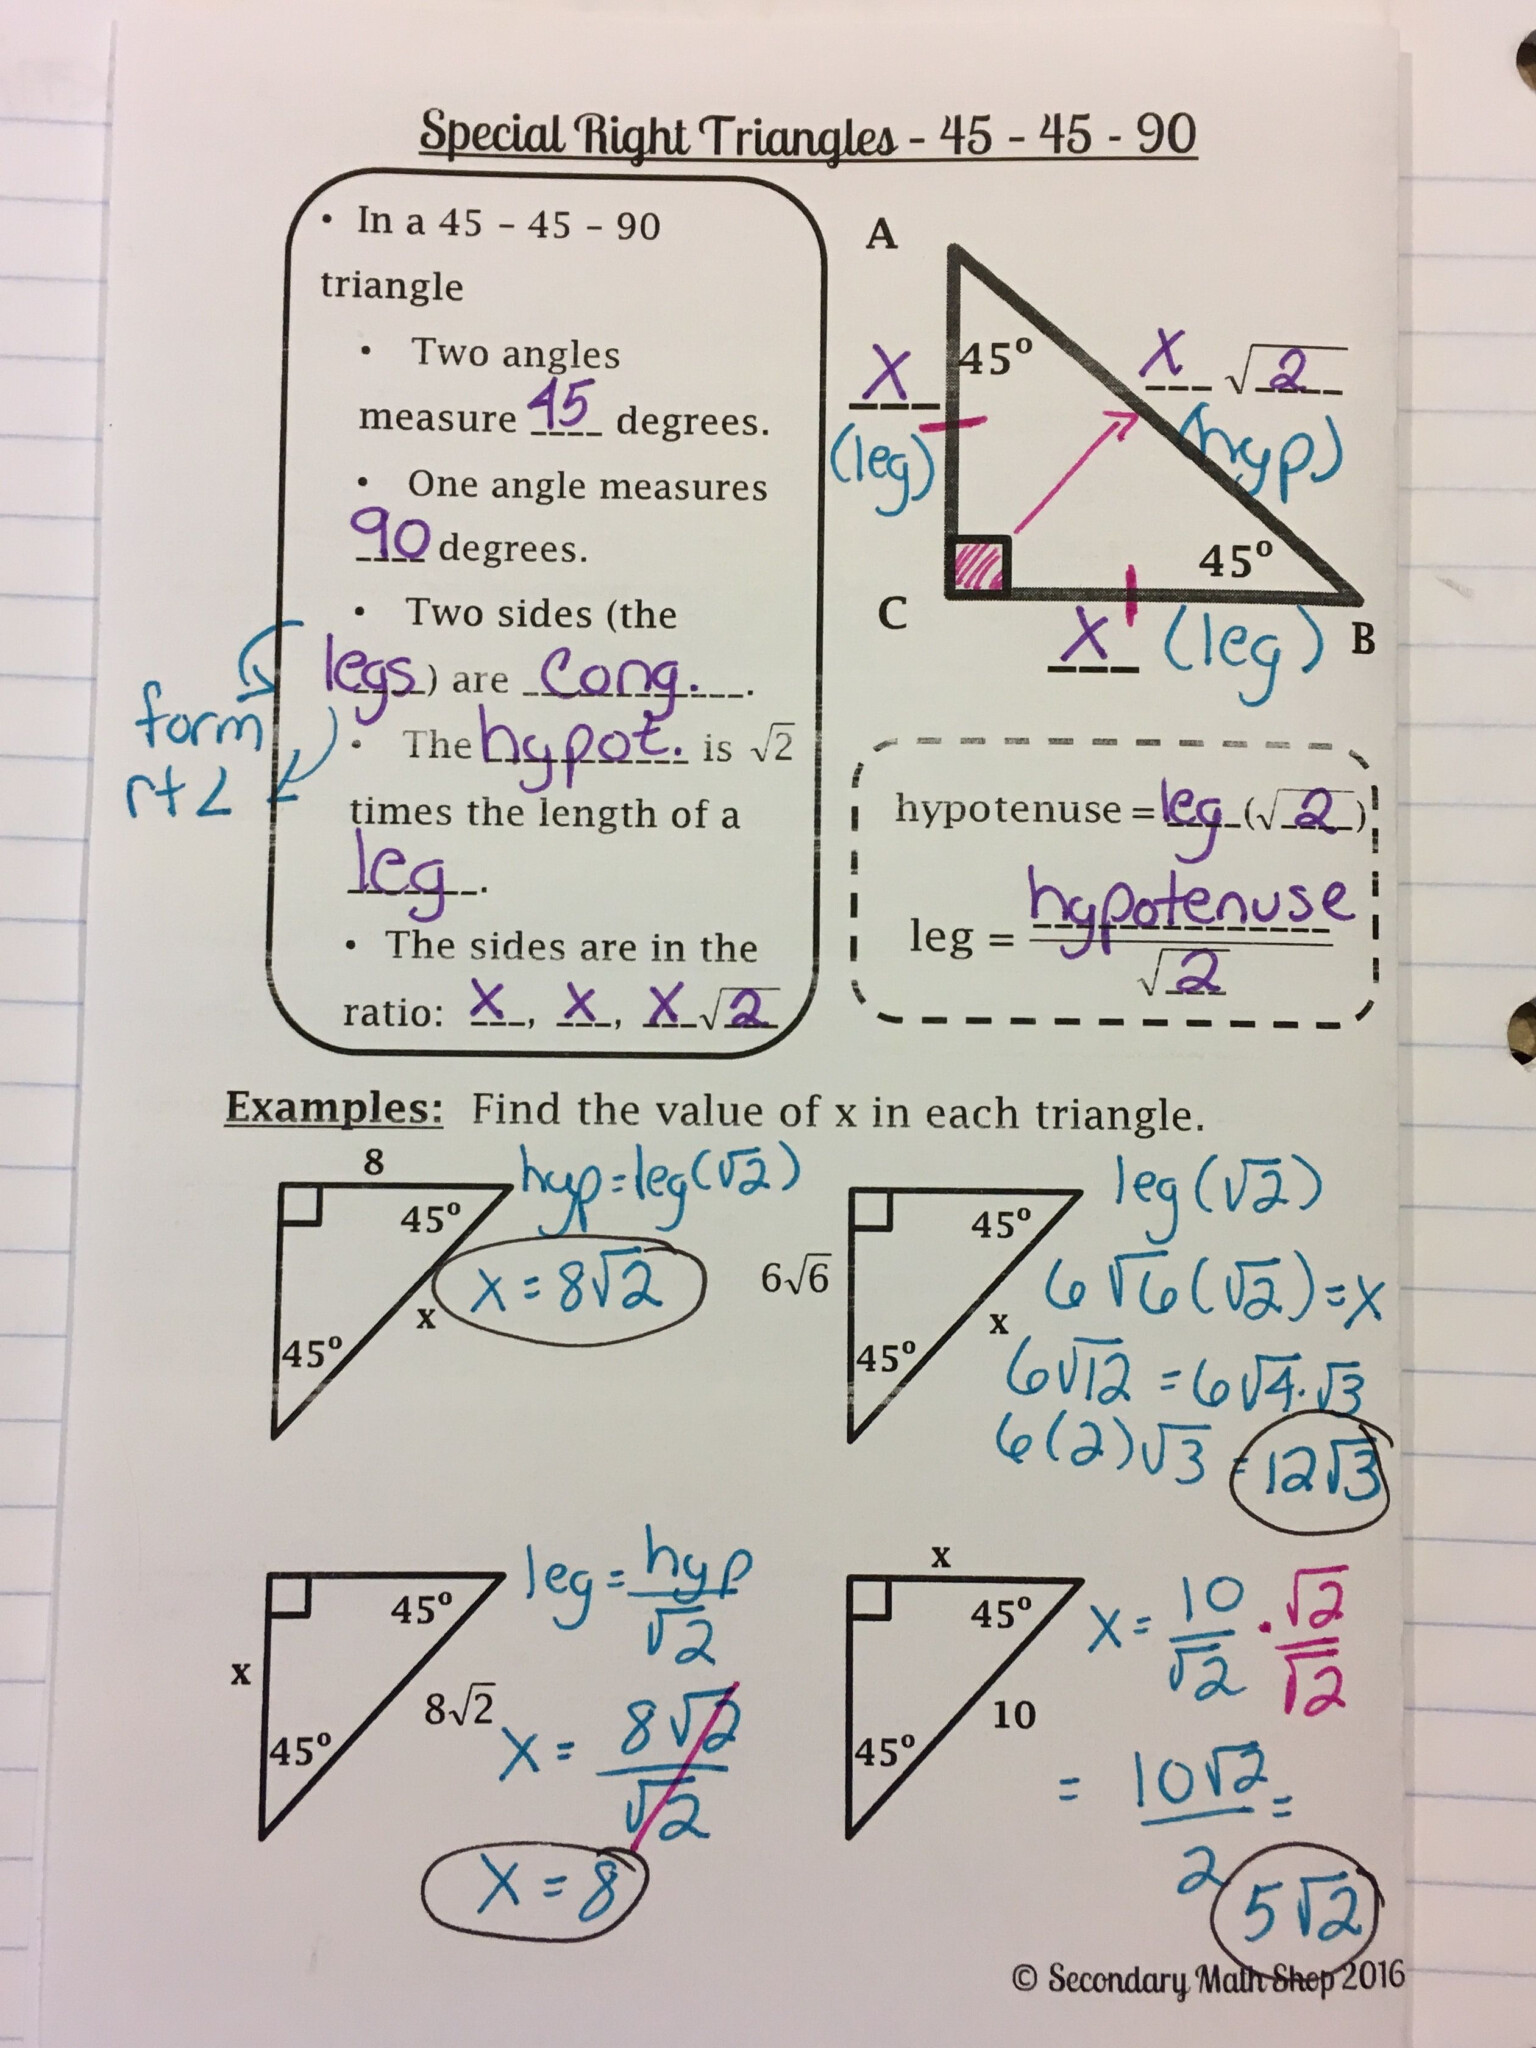 Special Right Triangles - 45 - 45 - 90
• In a 45 – 45 – 90
triangle
• Two angles
measure 45 degrees.
• One angle measures
90 degrees.
• Two sides (the
legs) are cong.
• The hypot. is √2
times the length of a
leg.
• The sides are in the
ratio: x, x, x√2
form
rt ∠
A
45º
x
(leg)
x √2
(hyp)
45º
C
x (leg)
B
hypotenuse = leg (√2)
leg = hypotenuse
√2
Examples: Find the value of x in each triangle.
8
45º
45º
x
hyp = leg(√2)
x = 8√2
6√6
45º
45º
x
leg (√2)
6√6(√2) = x
6√12 = 6√4·√3
6(2)√3 = 12√3
x
45º
45º
8√2
leg = hyp
√2
x = 8√2
√2
x = 8
x
45º
45º
10
x = 10 · √2
√2 √2
= 10√2 =
2
5√2
© Secondary Math Shop 2016